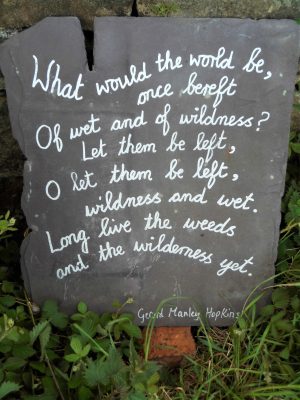 What would the world be,
once bereft
Of wet and of wildness?
Let them be left,
O let them be left,
wildness and wet.
Long live the weeds
and the wilderness yet.
Gerard Manley Hopkins